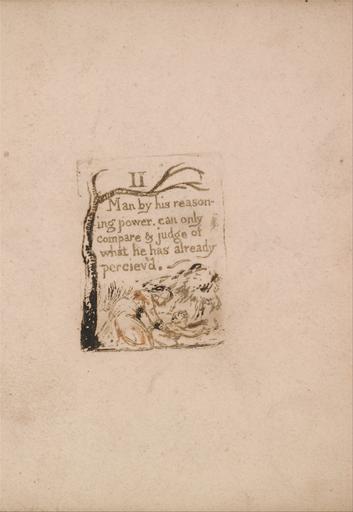 II
Man by his reason-
ing power. can only
compare & judge of
what he has already
perciev'd.